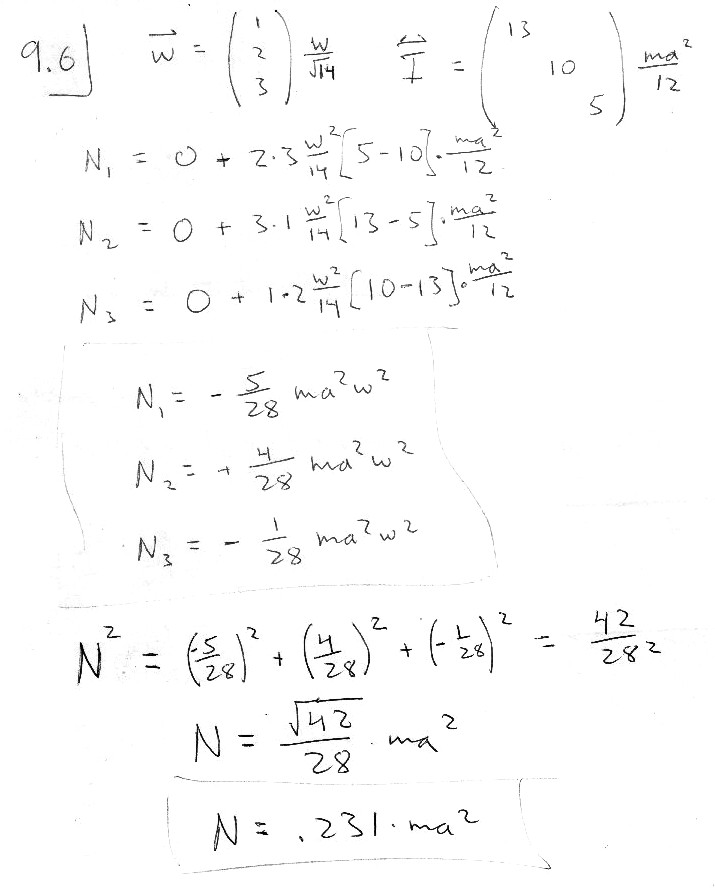 9.6] $\vec{w} = \begin{pmatrix} 1 \\ 2 \\ 3 \end{pmatrix} \frac{w}{\sqrt{14}}$ $\overleftrightarrow{I} = \begin{pmatrix} 13 & & \\ & 10 & \\ & & 5 \end{pmatrix} \frac{ma^2}{12}$
$N_1 = 0 + 2 \cdot 3 \frac{w^2}{14} [5-10] \cdot \frac{ma^2}{12}$
$N_2 = 0 + 3 \cdot 1 \frac{w^2}{14} [13-5] \cdot \frac{ma^2}{12}$
$N_3 = 0 + 1 \cdot 2 \frac{w^2}{14} [10-13] \cdot \frac{ma^2}{12}$
$N_1 = -\frac{5}{28} ma^2 w^2$
$N_2 = +\frac{4}{28} ma^2 w^2$
$N_3 = -\frac{1}{28} ma^2 w^2$
$N^2 = \left(\frac{-5}{28}\right)^2 + \left(\frac{4}{28}\right)^2 + \left(-\frac{1}{28}\right)^2 = \frac{42}{28^2}$
$N = \frac{\sqrt{42}}{28} \cdot ma^2$
$N = .231 \cdot ma^2$